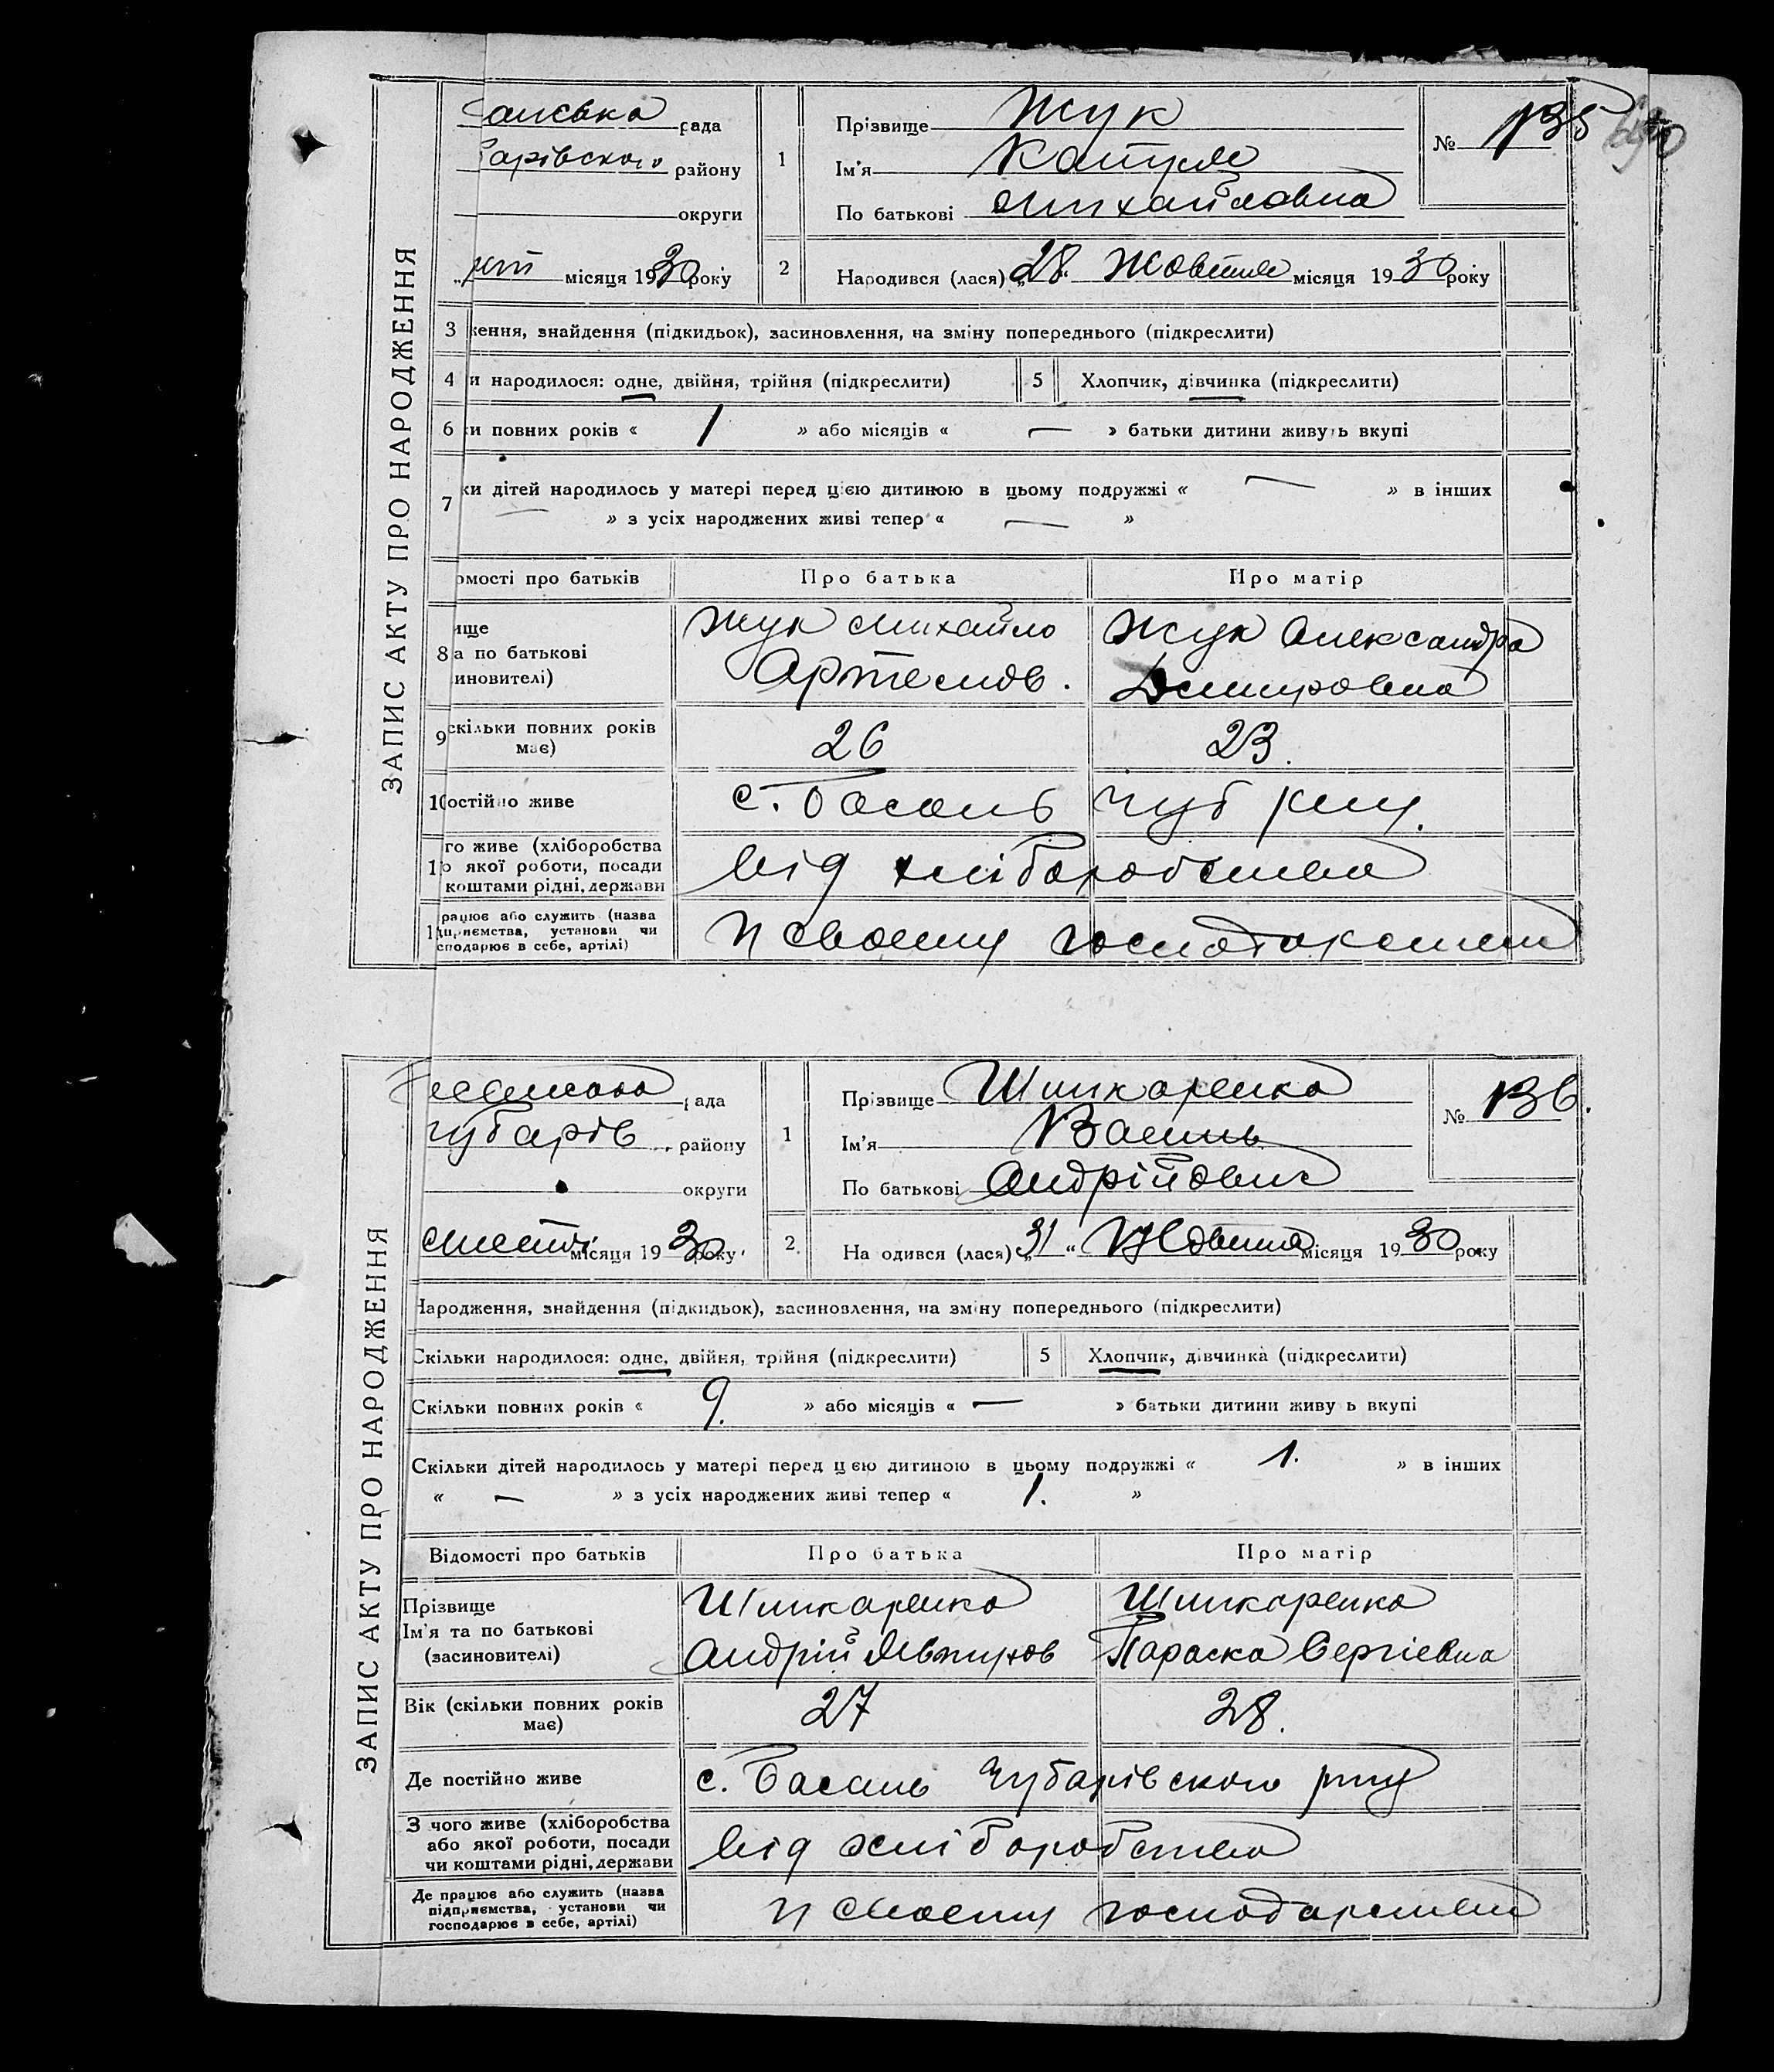 ЗАПИС АКТУ ПРО НАРОДЖЕННЯ
анська рада
барівского району
округи
місяця 1930 року
1
Прізвище Жук
Ім'я Катря
По батькові Михайловна
№ 135
2
Народився (лася) „28“ Жовтня місяця 1930 року
3 ження, знайдення (підкидьок), засиновлення, на зміну попереднього (підкреслити)
4 и народилося: одне, двійня, трійня (підкреслити) 5 Хлопчик, дівчинка (підкреслити)
6 ки повних років « 1 » або місяців « — » батьки дитини живуть вкупі
7 ки дітей народилось у матері перед цією дитиною в цьому подружжі « — » в інших
— » з усіх народжених живі тепер « — »
омості про батьків Про батька Про матір
8 ище
а по батькові
иновителі)
Жук Михайло
Артемов.
Жук Александра
Дмитровна
9 скільки повних років
має)
26 23.
10 остійно живе с. Басань Чуб р-ну.
1 го живе (хліборобства
о якої роботи, посади
коштами рідні, держави
від хліборобства
1 рацює або служить (назва
дприємства, установи чи
сподарює в себе, артілі)
У своєму господарстві
ЗАПИС АКТУ ПРО НАРОДЖЕННЯ
рада
Чубарів району
округи
місяця 1930 року
1
Прізвище Шинкаренко
Ім'я Василь
По батькові Андрійович
№ 136.
2
На одився (лася) „31“ Жовтня місяця 1930 року
Народження, знайдення (підкидьок), засиновлення, на зміну попереднього (підкреслити)
Скільки народилося: одне, двійня, трійня (підкреслити) 5 Хлопчик, дівчинка (підкреслити)
Скільки повних років « 9. » або місяців « — » батьки дитини живу ь вкупі
Скільки дітей народилось у матері перед цією дитиною в цьому подружжі « 1. » в інших
« — » з усіх народжених живі тепер « 1. »
Відомості про батьків Про батька Про матір
Прізвище
Ім'я та по батькові
(засиновителі)
Шинкаренко
Андрій Явтухов
Шинкаренко
Параска Сергіевна
Вік (скільки повних років
має)
27 28.
Де постійно живе с. Басань Чубарівского р-ну
З чого живе (хліборобства
або якої роботи, посади
чи коштами рідні, держави
від хліборобства
Де працює або служить (назва
підприємства, установи чи
господарює в себе, артілі)
у своєму господарстві